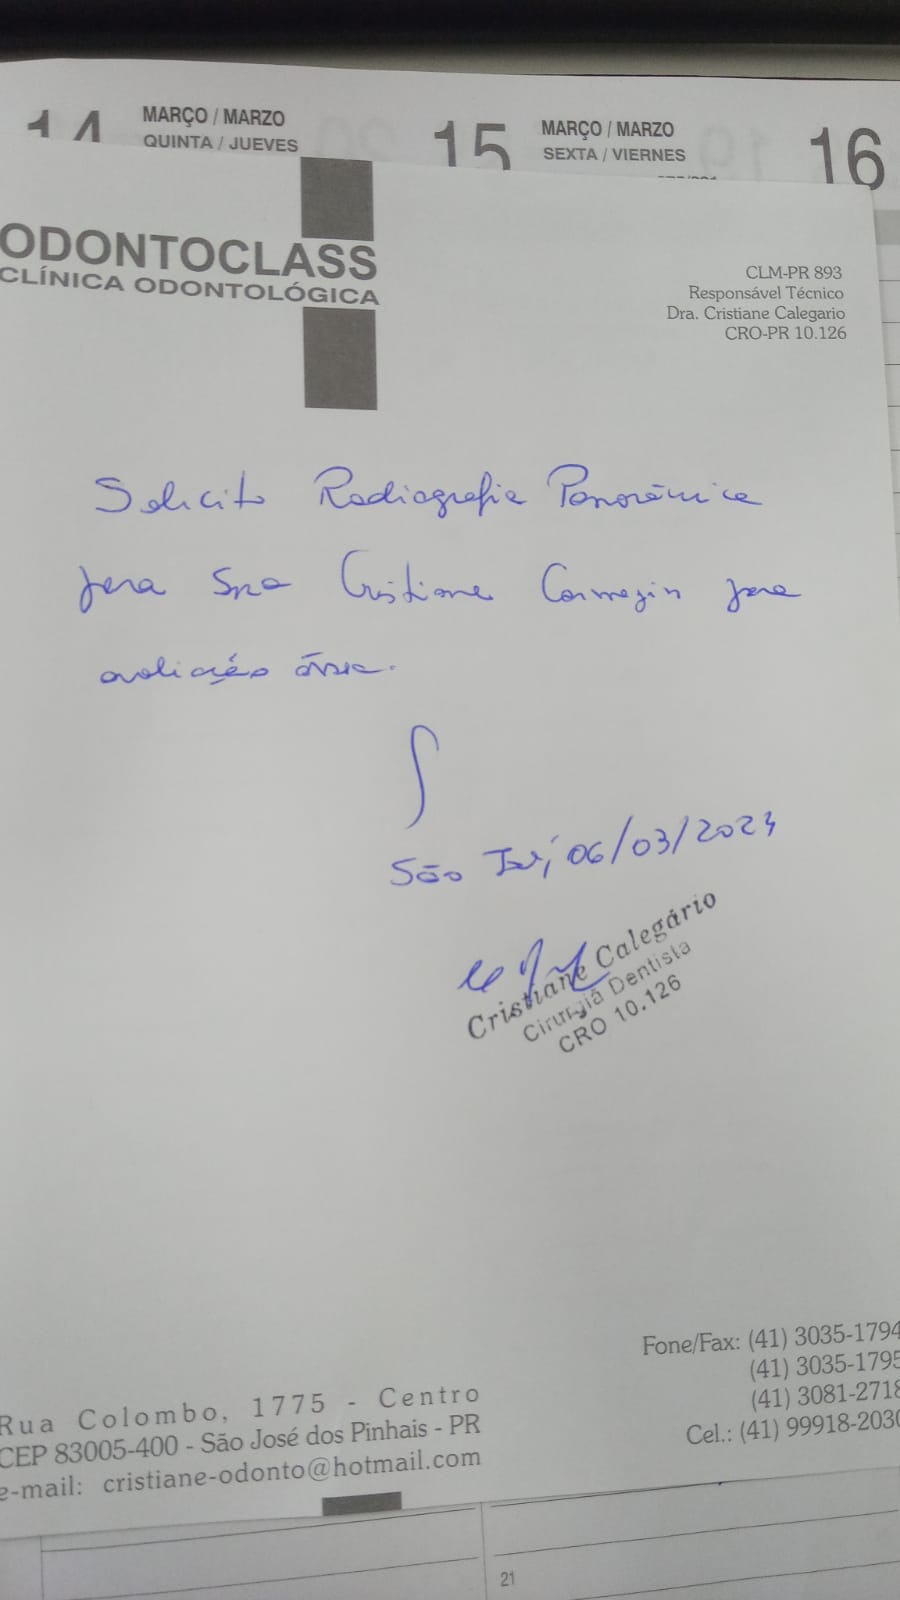 14 MARÇO / MARZO
QUINTA / JUEVES
15 MARÇO / MARZO
SEXTA / VIERNES
16
ODONTOCLASS
CLÍNICA ODONTOLÓGICA
CLM-PR 893
Responsável Técnico
Dra. Cristiane Calegario
CRO-PR 10.126
Solicito Radiografia Panorâmica
para Sra Cristiane para
avaliação óssea.
São José, 06/03/2024
Cristiane Calegário
Cirurgiã Dentista
CRO 10.126
Fone/Fax: (41) 3035-1794
(41) 3035-1795
(41) 3081-2718
Cel.: (41) 99918-2030
Rua Colombo, 1775 - Centro
CEP 83005-400 - São José dos Pinhais - PR
e-mail: cristiane-odonto@hotmail.com
21